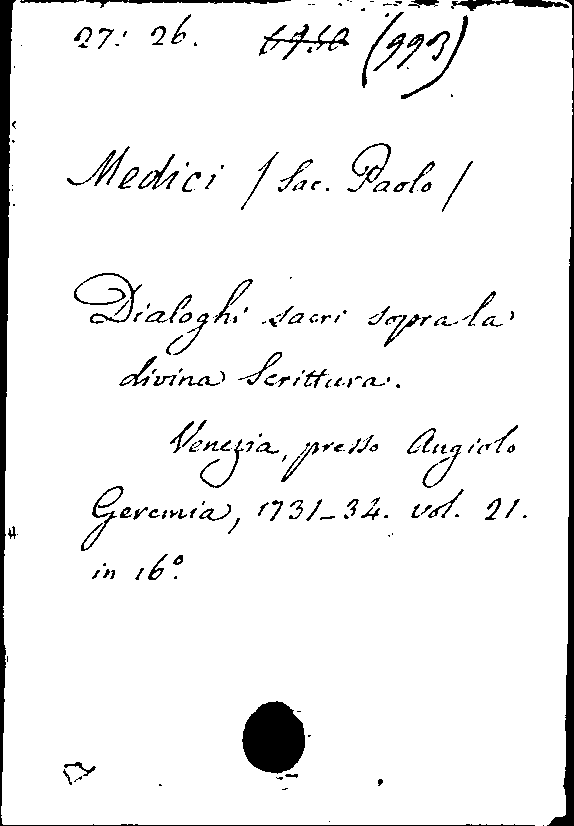 27: 26. (993)
Medici / Sac. Paolo /
Dialoghi sacri sopra la
divina Scrittura.
Venezia, presso Angiolo
Geremia, 1731-34. vol. 21.
in 16º.